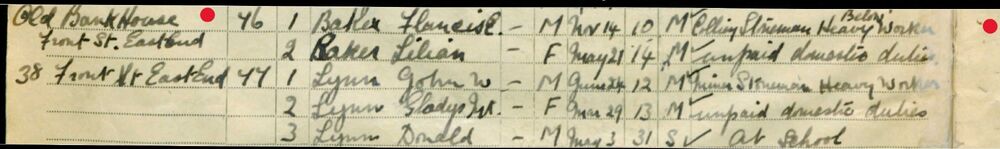 Old Bank House 46 1 Baker Francis E. - M Nov 14 10 M Colliery Stoneman Heavy Worker Below
Front St. East End 2 Baker Lilian - F May 21 14 M unpaid domestic duties
38 Front St East End 47 1 Lynn John W - M June 24 12 M Miner Stoneman Heavy Worker
2 Lynn Gladys M. - F Mar 29 13 M unpaid domestic duties
3 Lynn Donald - M May 3 31 S At School